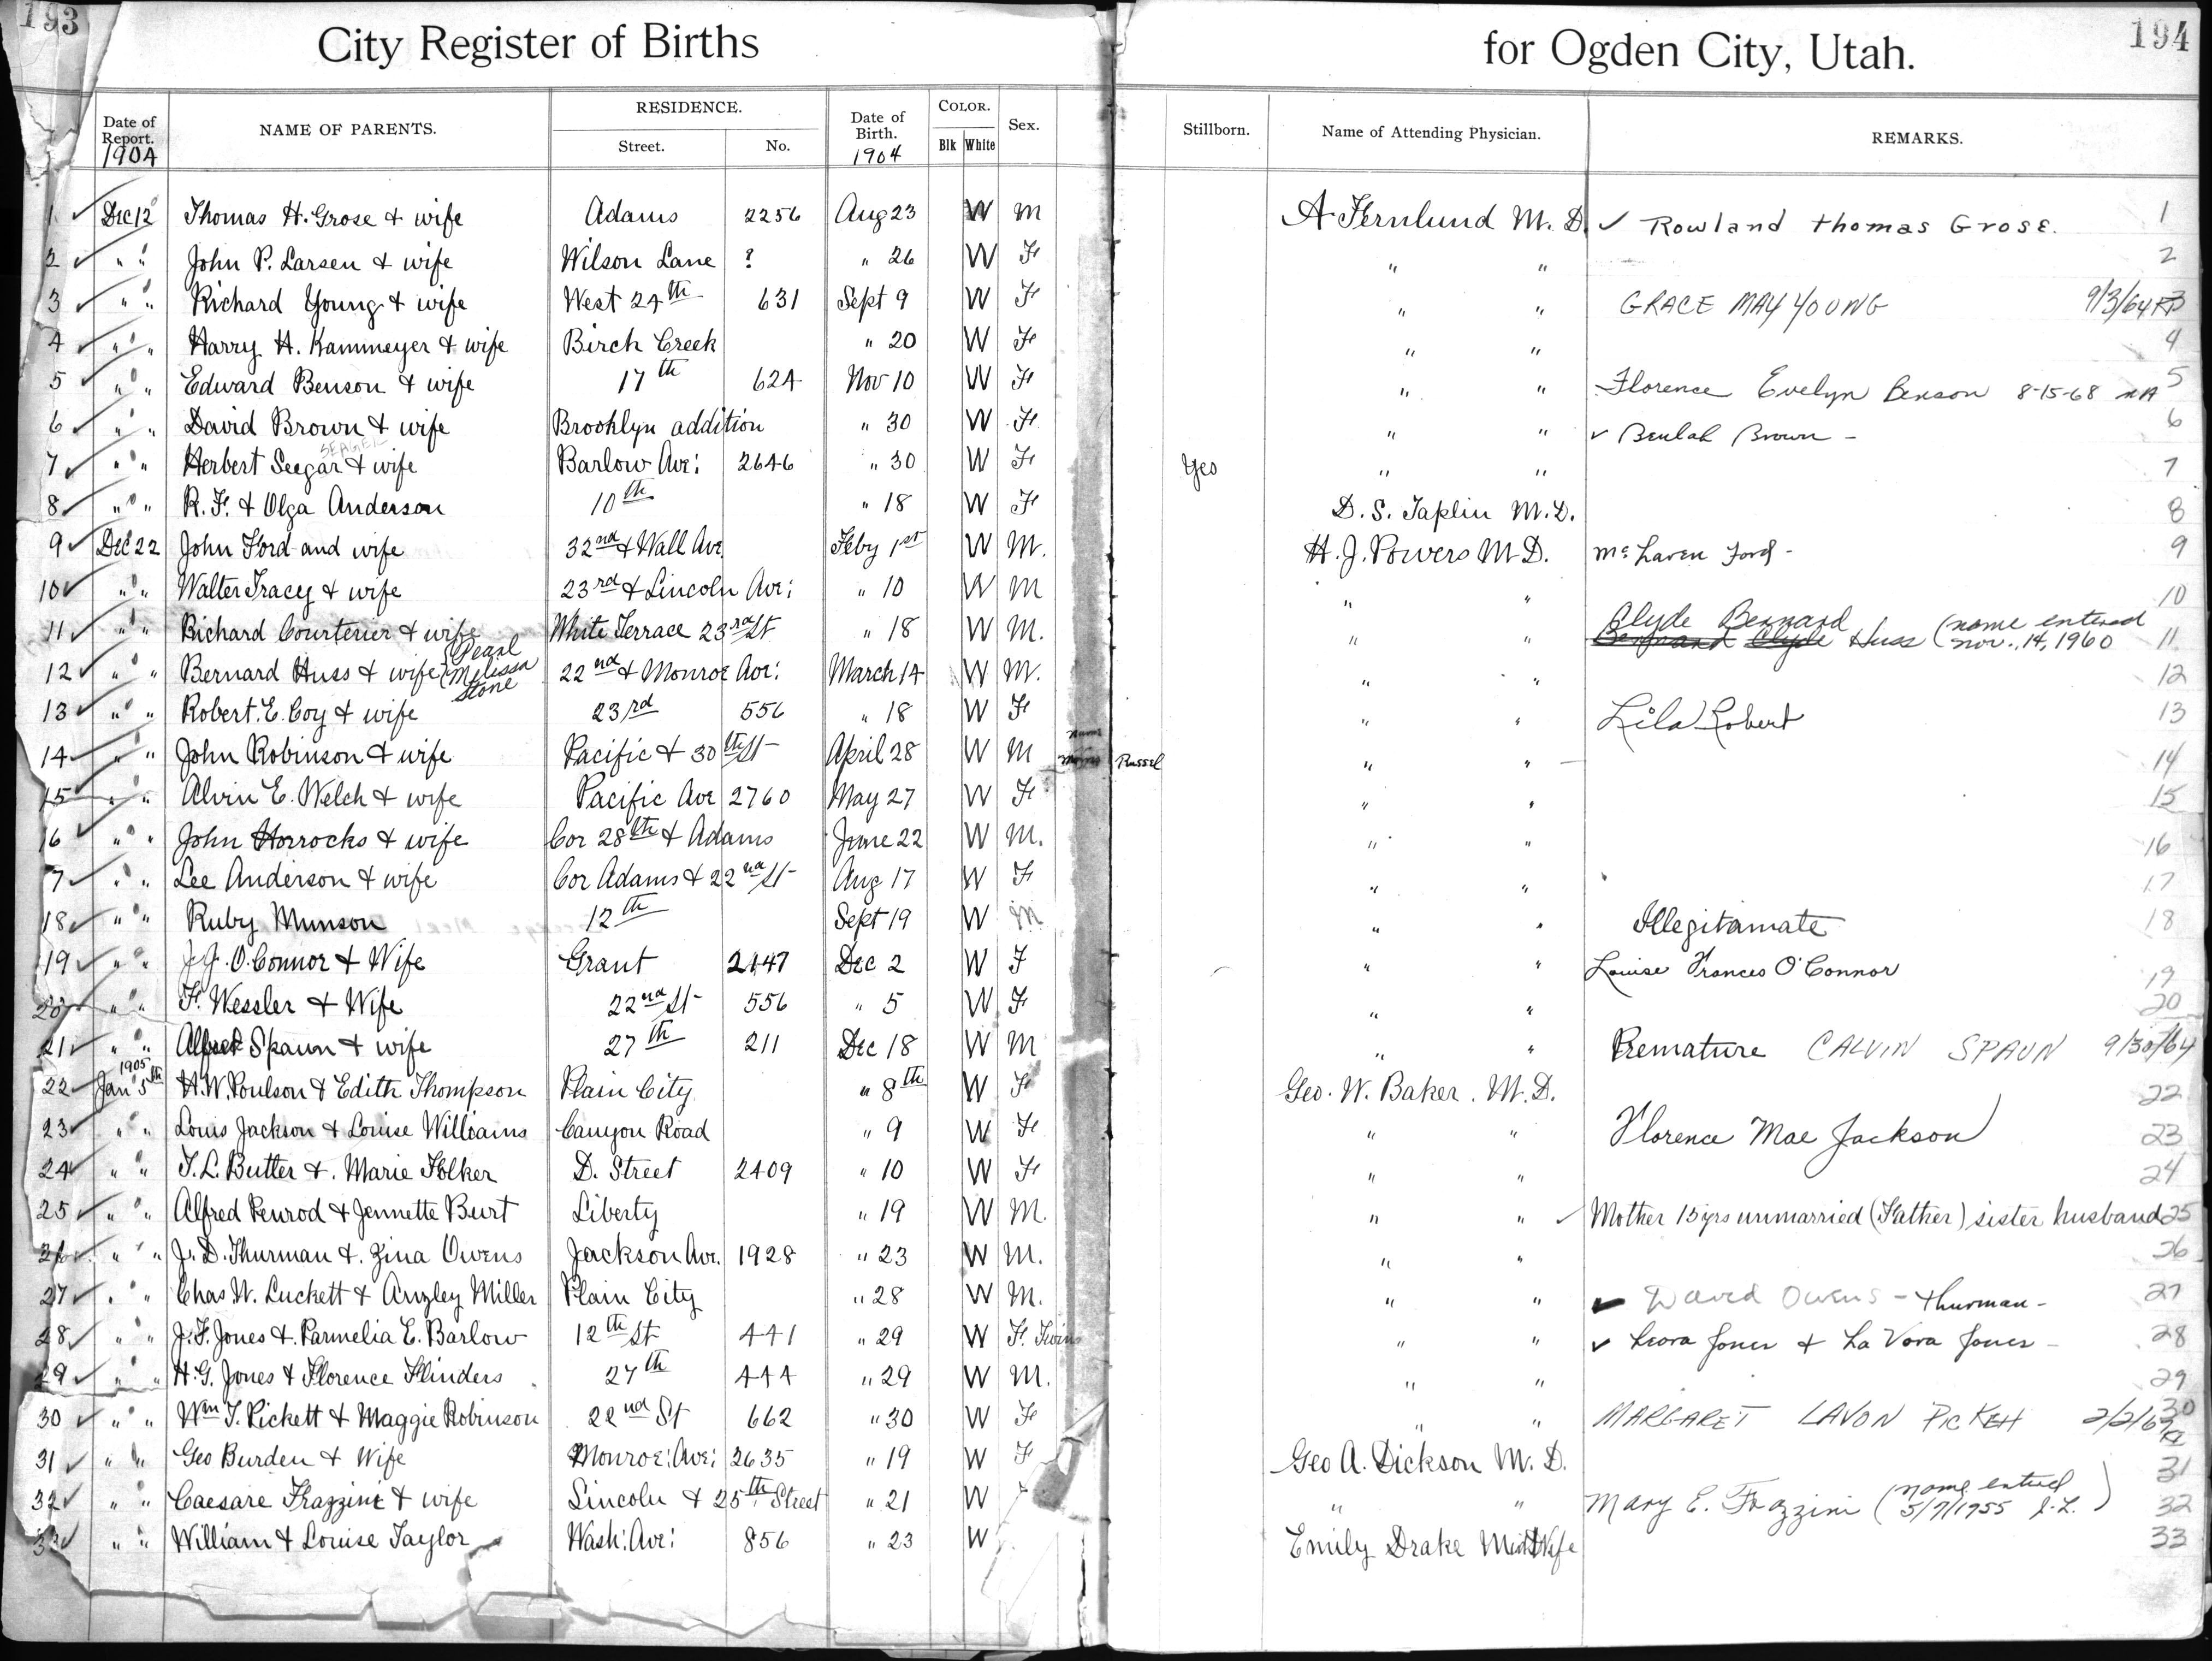 193
City Register of Births for Ogden City, Utah.
194
Date of Report. 1904 NAME OF PARENTS. RESIDENCE. Street. No. Date of Birth. 1904 COLOR. Blk White Sex. Stillborn. Name of Attending Physician. REMARKS.
1 Dec 12 Thomas H. Grose & wife Adams 2256 Aug 23 W M A Fernlund M. D. ✓ Rowland Thomas Grose. 1
2 " " John P. Larsen & wife Wilson Lane ? " 26 W F " " 2
3 " " Richard Young & wife West 24th 631 Sept 9 W F " " GRACE MAY YOUNG 9/3/64 3
4 " " Harry H. Kammeyer & wife Birch Creek " 20 W F " " 4
5 " " Edward Benson & wife 17th 624 Nov 10 W F " " Florence Evelyn Benson 8-15-68 5
6 " " David Brown & wife Brooklyn addition " 30 W F " " ✓ Beulah Brown - 6
SEAGER
7 " " Herbert Seegar & wife Barlow Ave: 2646 " 30 W F Yes " " 7
8 " " R. F. & Olga Anderson 10th " 18 W F D. S. Taplin M.D. 8
9 Dec 22 John Ford and wife 32nd & Wall Ave Feby 1st W M. H. J. Powers M D. McLaren Ford - 9
10 " " Walter Tracy & wife 23rd & Lincoln Ave: " 10 W M " " 10
11 " " Richard Courterier & wife White Terrace 23rd St " 18 W M. " " Clyde Bernard Bernard Clyde Huss (name entered nov., 14, 1960 11
12 " " Bernard Huss & wife (Pearl Melissa Stone 22nd & Monroe Ave: March 14 W M. " " 12
13 " " Robert. E. Coy & wife 23rd 556 " 18 W F " " Lila Robert 13
14 " " John Robinson & wife Pacific & 30th St April 28 W M Russel " " 14
15 " " Alvin E. Welch & wife Pacific Ave 2760 May 27 W F " " 15
16 " " John Horrocks & wife Cor 28th & Adams June 22 W M. " " 16
7 " " Lee Anderson & wife Cor Adams & 22nd St Aug 17 W F " " 17
18 " " Ruby Munson 12th Sept 19 W M " " Illegitamate 18
19 " " J. J. O.Connor & Wife Grant 2447 Dec 2 W F " " Louise Frances O'Connor 19
20 " " F. Wessler & Wife 22nd St 556 " 5 W F " " 20
21 " " Alfred Spaun & wife 27th 211 Dec 18 W M " " Premature CALVIN SPAUN 9/30/64
22 1905 Jan 5th H. W. Poulson & Edith Thompson Plain City " 8th W F Geo. W. Baker. M. D. 22
23 " " Louis Jackson & Louise Williams Canyon Road " 9 W F " " Florence Mae Jackson) 23
24 " " T. L. Butter &. Marie Folker D. Street 2409 " 10 W F " " 24
25 " " Alfred Penrod & Jennette Burt Liberty " 19 W M. " " ✓ Mother 15 yrs unmarried (Father) sister husband 25
26 " " J. D. Thurman &. Zina Owens Jackson Ave. 1928 " 23 W M. " " 26
27 " " Chas W. Luckett & Anzley Miller Plain City " 28 W M. " " ✓ David Owens - Thurman - 27
28 " " J. F. Jones &. Parmelia E. Barlow 12th St 441 " 29 W F. Twins " " ✓ Leora Jones & La Vora Jones - 28
29 " " H. G. Jones & Florence Flinders 27th 444 " 29 W M. " " 29
30 " " Wm T. Pickett & Maggie Robinson 22nd St 662 " 30 W F " " MARGARET LAVON PICKETT 30
31 " " Geo Burden & Wife Monroe: Ave: 2635 " 19 W F Geo A. Dickson M. D. 31
32 " " Caesare Frazzini & wife Lincoln & 25th Street " 21 W " " Mary E. Frazzini (name entered 5/9/1955 J.L.) 32
33 " " William & Louise Taylor Wash: Ave: 856 " 23 W Emily Drake MidWife 33